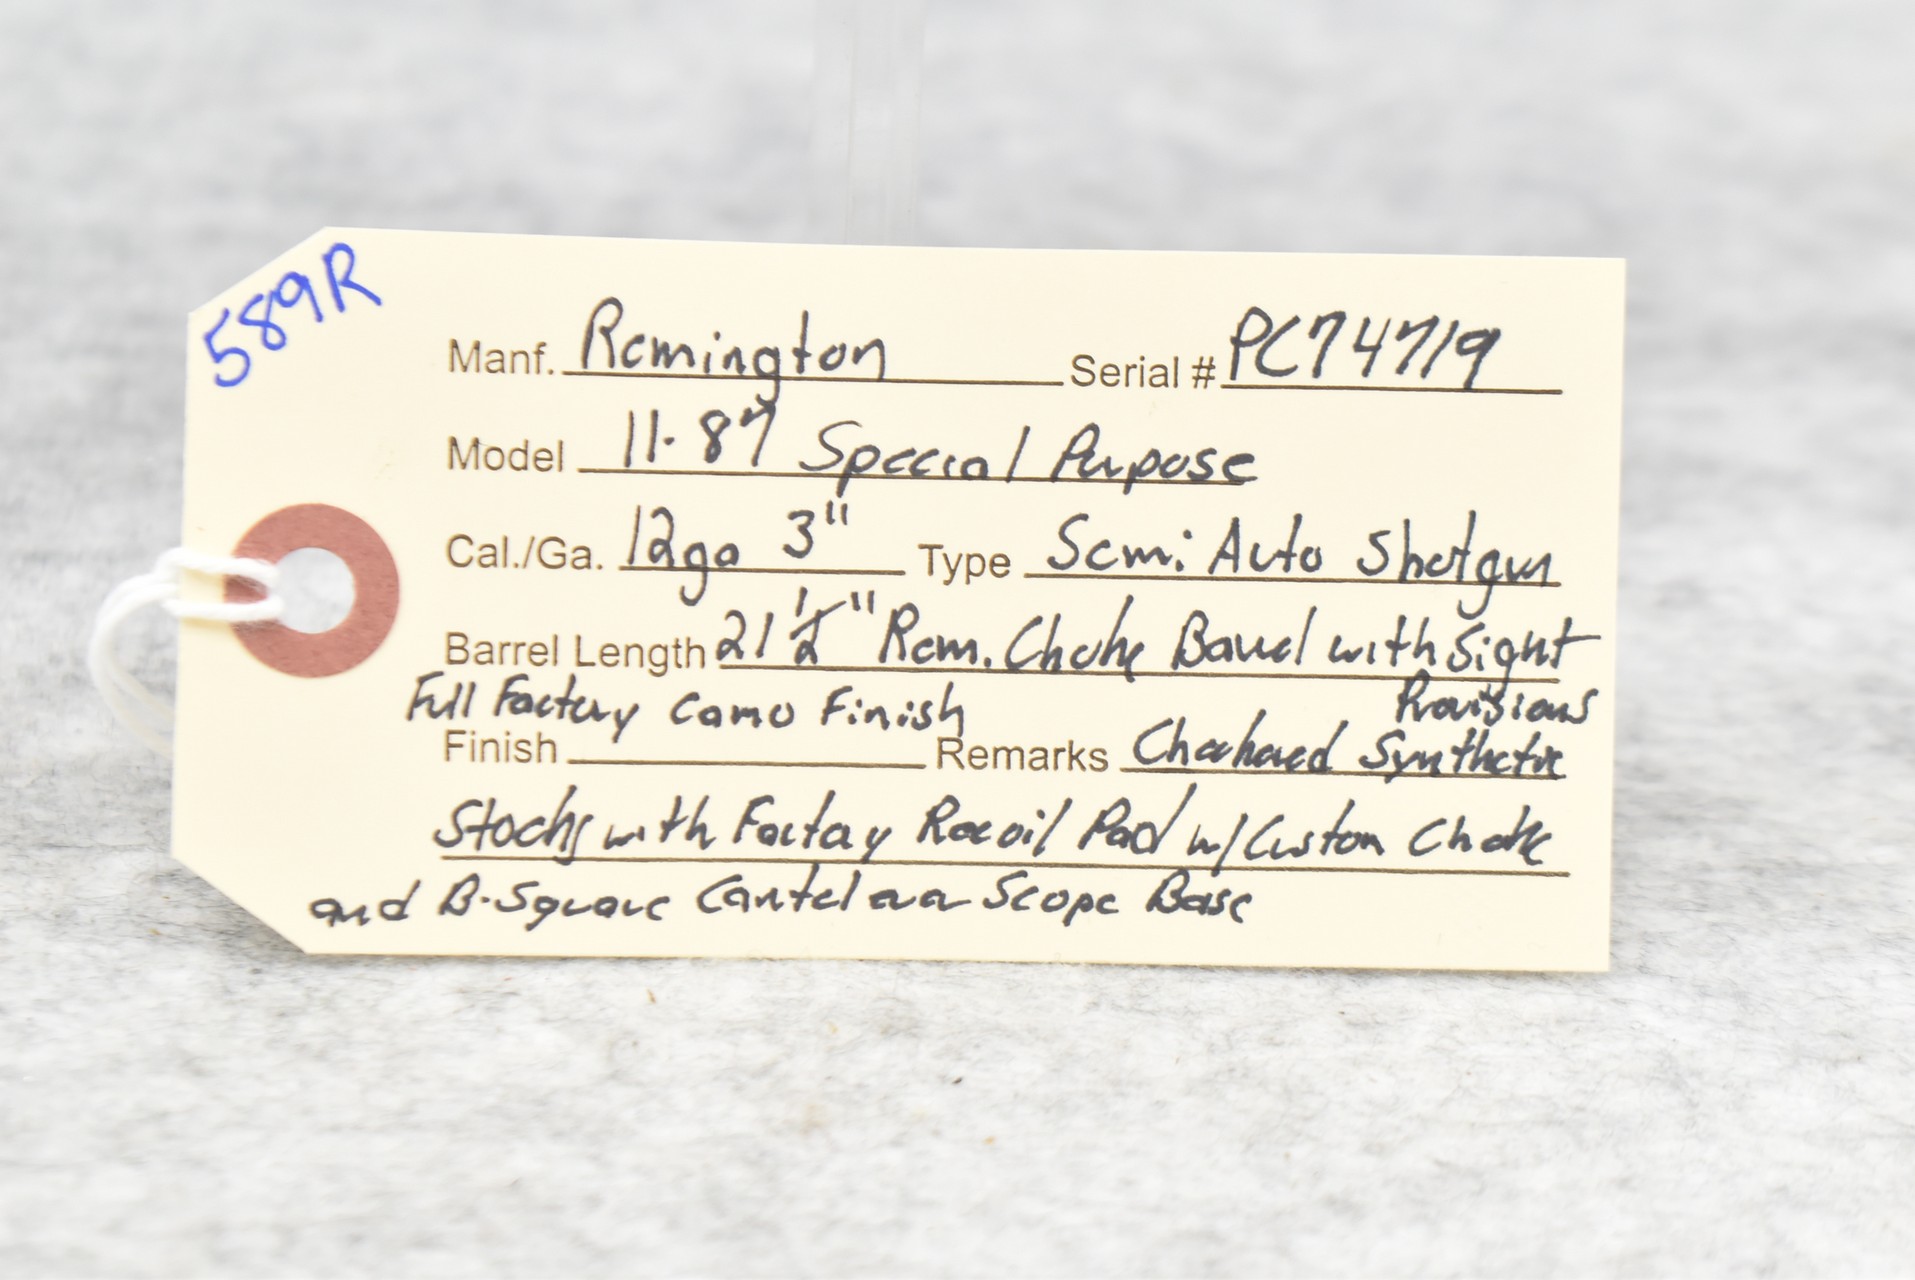 589R
Manf. Remington Serial # PC74719
Model 11-87 Special Purpose
Cal./Ga. 12ga 3" Type Semi Auto Shotgun
Barrel Length 21 1/2" Rem. Choke Barrel with Sight
Provisions
Full Factory Camo Finish
Finish Remarks Checkered Synthetic
Stocks with Factory Recoil Pad w/ Custom Choke
and B-Square Cantelever Scope Base